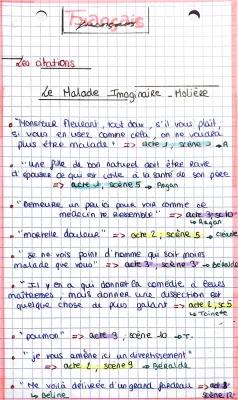 Français
Les citations
Le Malade Imaginaire - Molière
• "Monsieur Fleurant, tout doux, s'il vous plait,
si vous en usez comme cela, on ne voudra
plus être malade" => acte 1, scène 1 -> A
• "une fille de bon naturel doit être ravie
d'épouser ce qui est utile à la santé de son père
=> acte 1, scène 5 -> Argan
• "Demeurez un peu ici pour voir comme ce
médecin te ressemble" => acte 3, sc 10
-> Argan
• "mortelle douleur" => acte 2, scène 5 -> Cléante
• "je ne vois point d'homme qui soit moins
malade que vous" => acte 3, scène 3 -> Béralde
• "Il y en a qui donnent la comédie à leurs
maîtresses, mais donner une dissection est
quelque chose de plus galant => acte 2, sc 5
-> Toinette
• "poumon" => acte 3, scène 10 -> T.
• "je vous amène ici un divertissement"
=> acte 2, scène 9 -> Béralde
• "Me voilà délivrée d'un grand fardeau => act 3
-> Béline scène 12